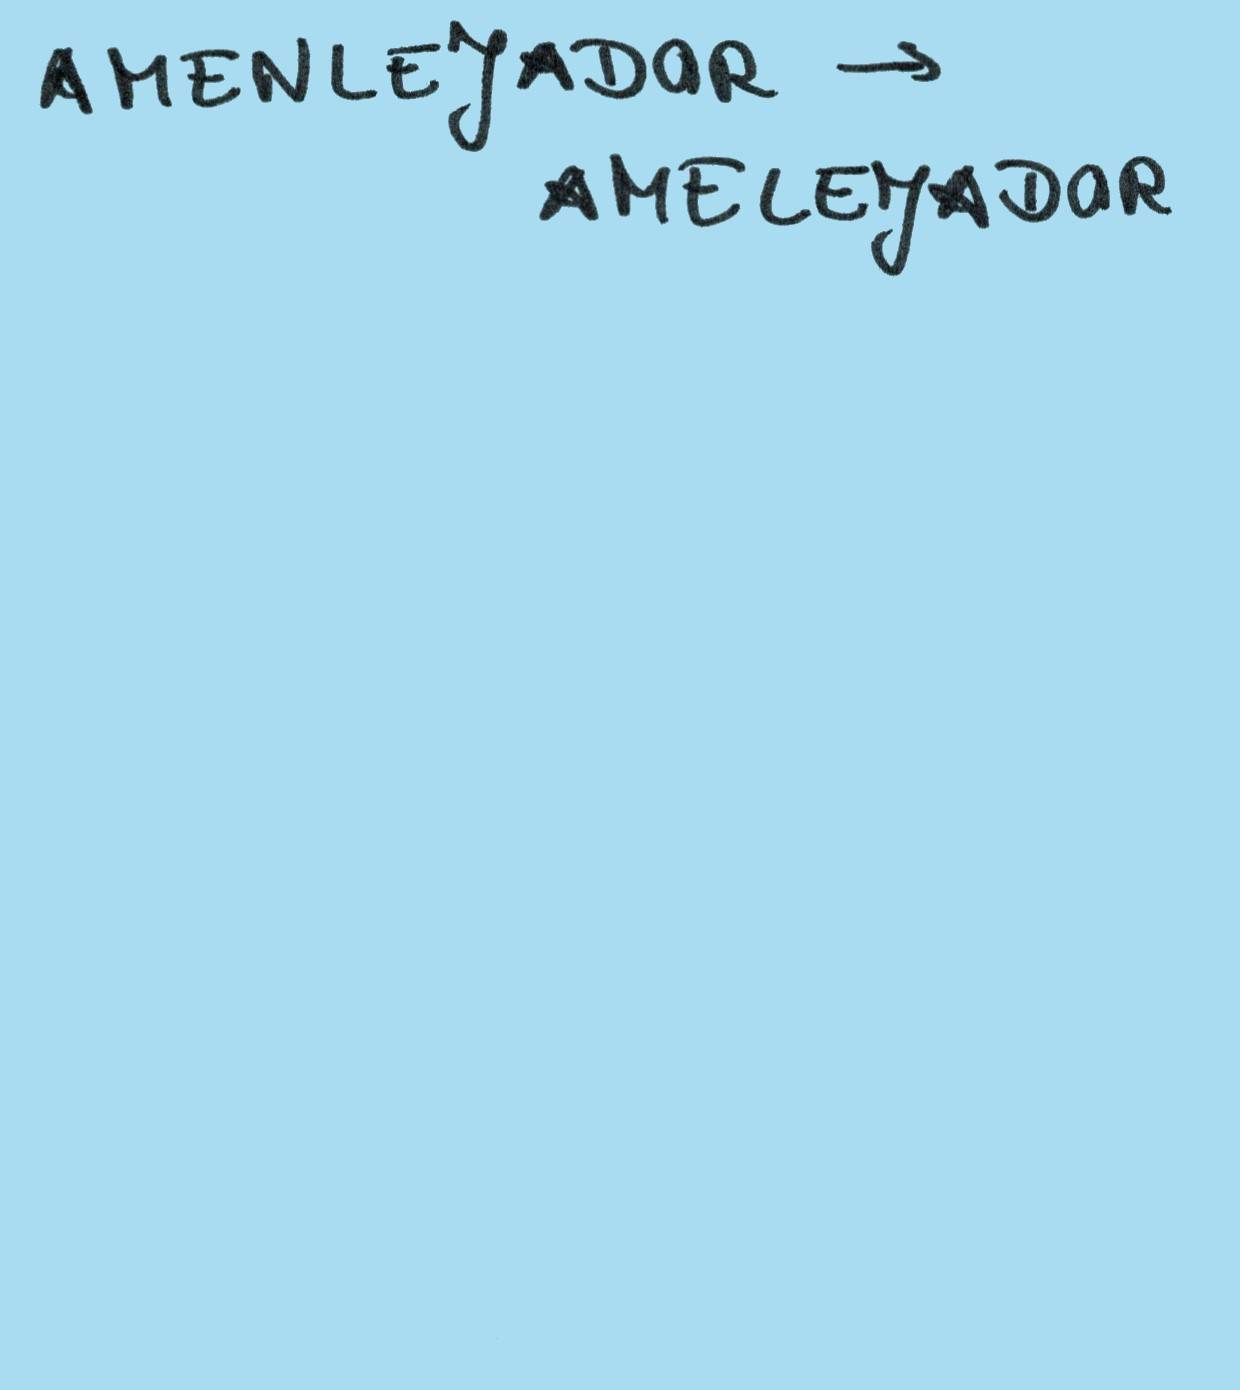 AMENLEYADOR →
AMELEYADOR